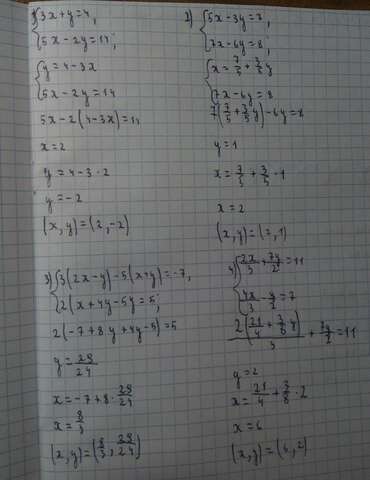 1) 3x+y=4,
5x-2y=14;
y=4-3x
5x-2y=14
5x-2(4-3x)=14
x=2
y=4-3·2
y=-2
(x,y)=(2,-2)
2) 5x-3y=7,
7x-6y=8;
x=7/5+3/5y
7x-6y=8
7(7/5+3/5y)-6y=8
y=1
x=7/5+3/5·1
x=2
(x,y)=(2,1)
3) 3(2x-y)-5(x+y)=-7,
2(x+4y-5y=5;
2(-7+8y+4y-5)=5
y=29/24
x=-7+8·29/24
x=8/3
(x,y)=(8/3;29/24)
4) 2x/3+7y/2=11
4x/3-y/2=7
2(21/4+3/8y)/3+7y/2=11
y=2
x=21/4+3/8·2
x=6